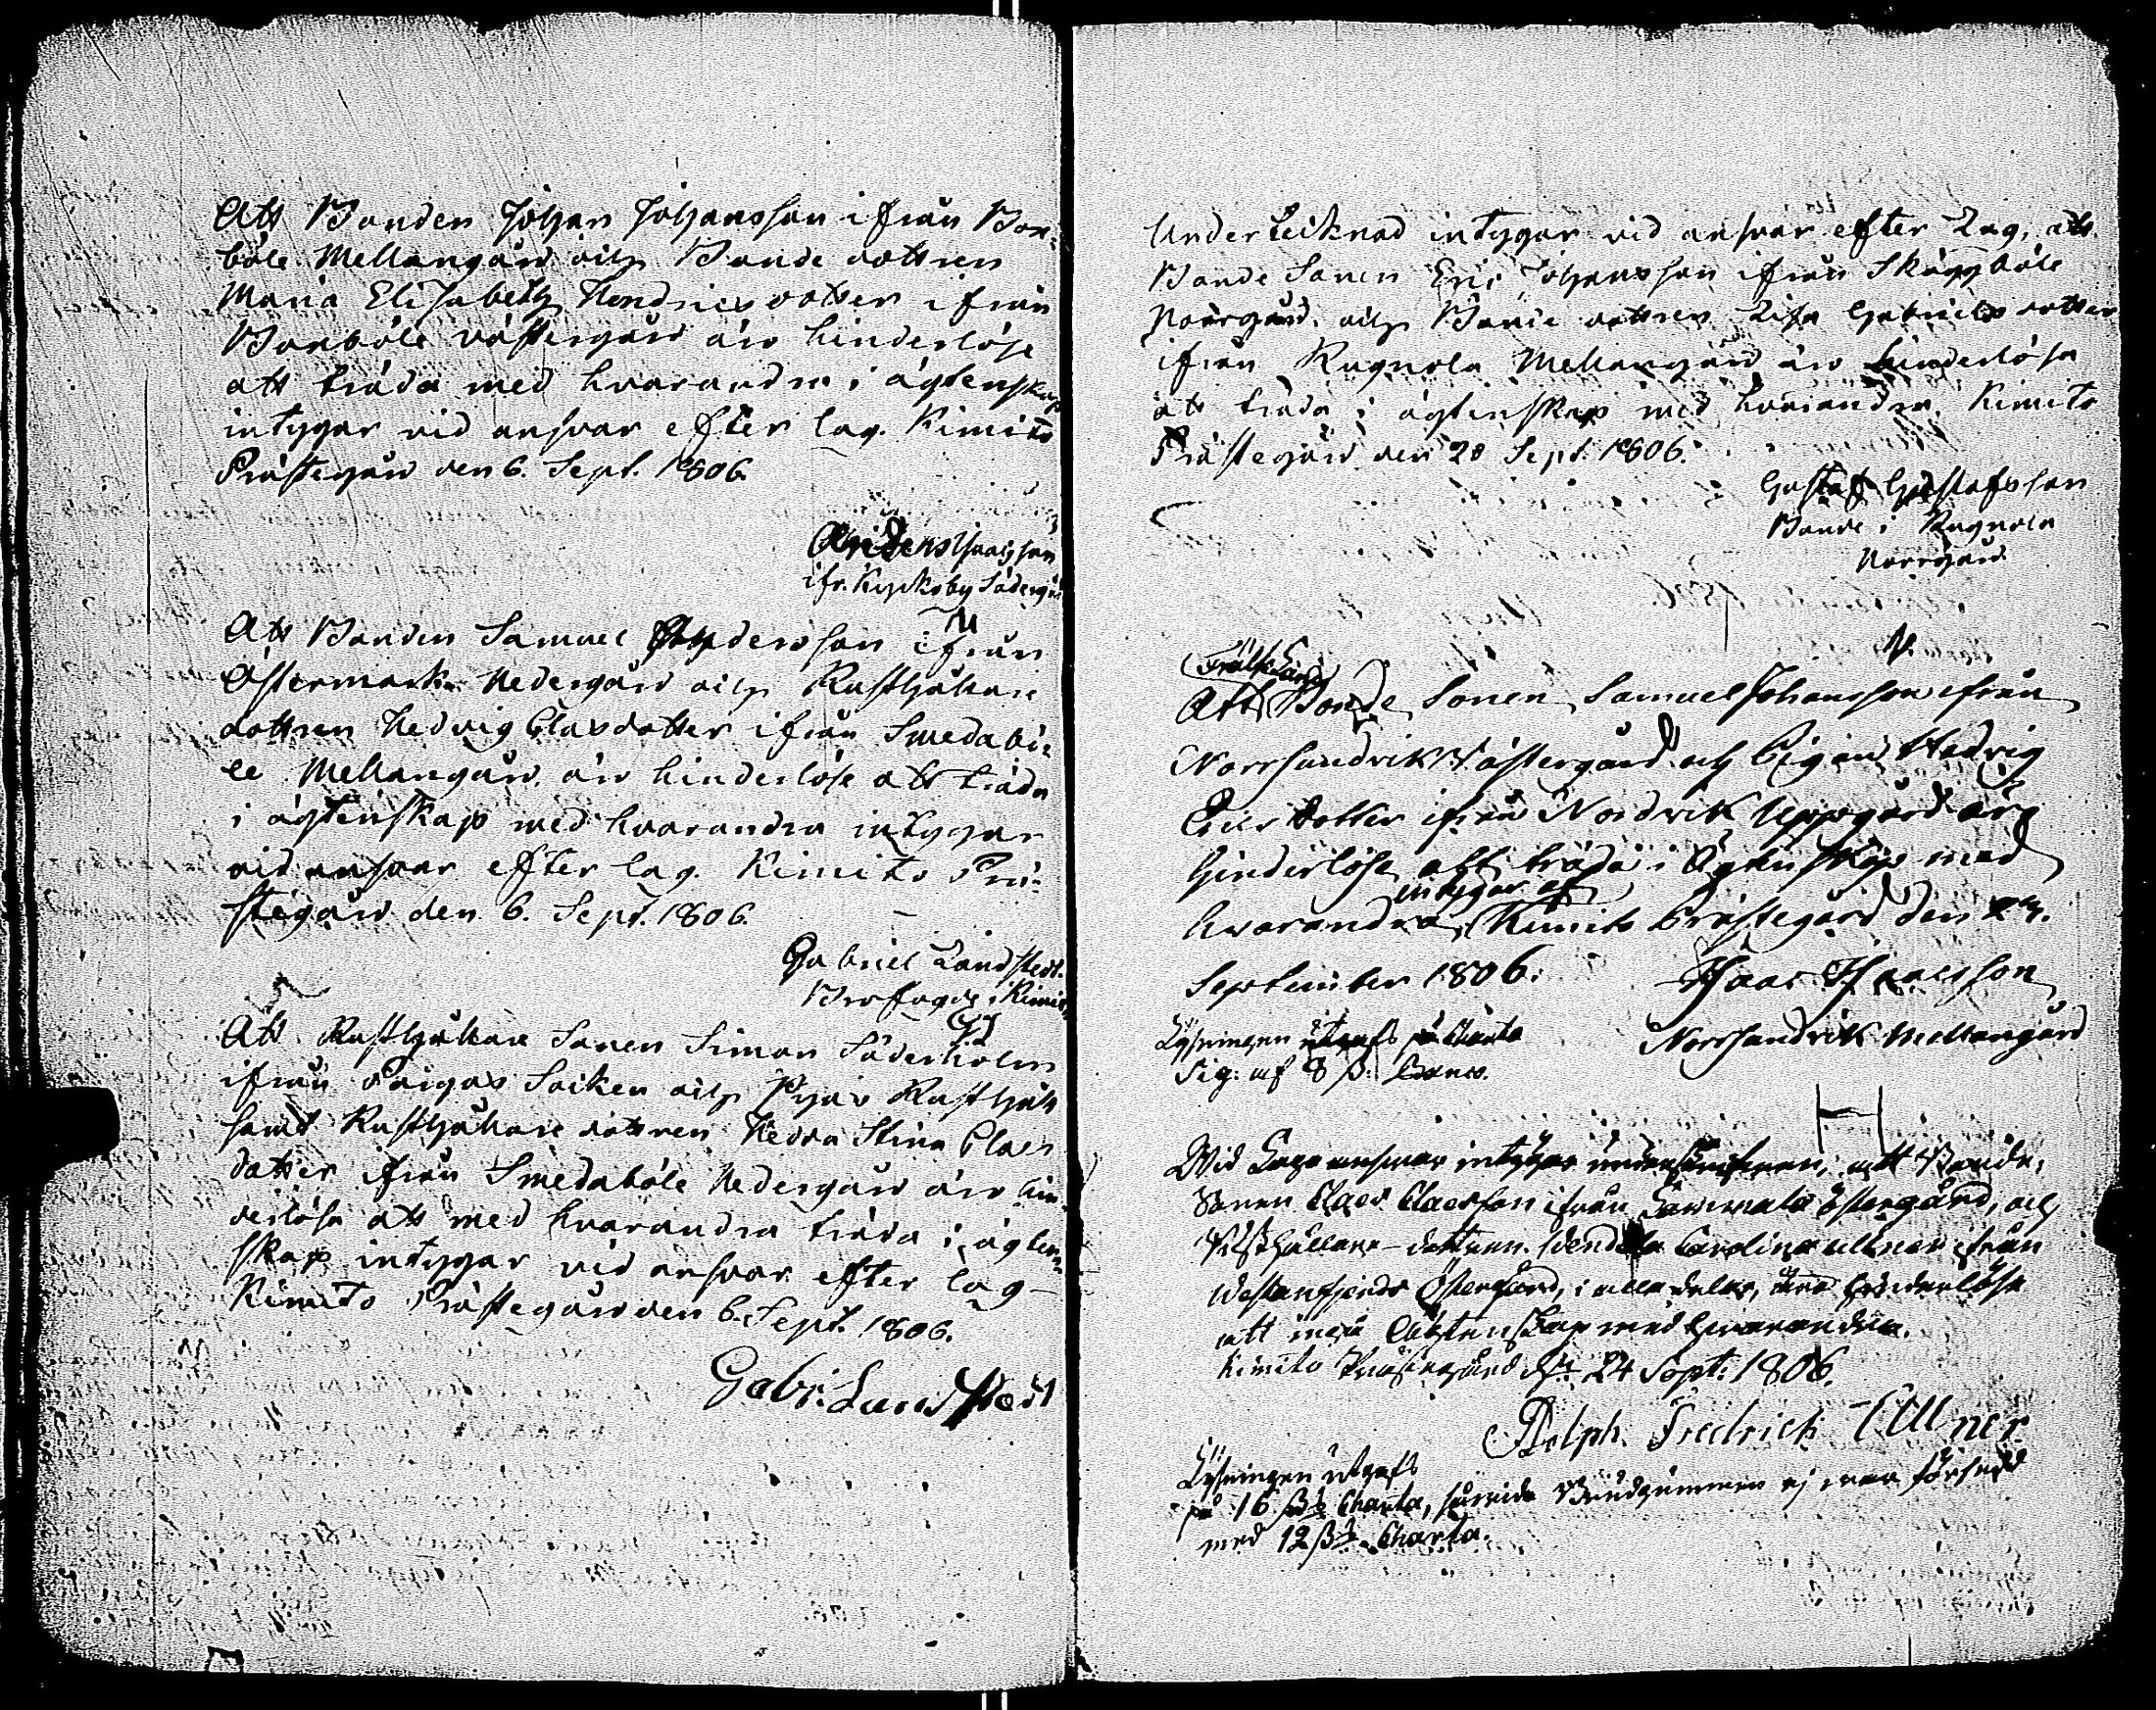 Att Bonden Johan Johansson ifrån Bor-
böle Mellangård och Bonde dottren
Maria Elisabeth Hendricsdotter ifrån
Borböle västergård äro hinderlöse
att träda med hvarandra i ägtenskap
intygar vid answar efter lag. Kimito
Prästegård den 6. Sept. 1806.
Isaacsson
ifr. Söderg
Att Bonden Samuel Andersson ifrån
Östermark Nedergård och Rusthållare
dottren Hedvig Clasdotter ifrån Smedabö-
le Mellangård äro hinderlöse att träda
i ägtenskap med hvarandra intygar
vid answar efter lag. Kimito Prä-
stegård den 6. Sept. 1806.
Gabriel Landstedt.
Brofogde i Kimito
Att Rusthållare Sonen Simon Söderholm
ifrån Pargas Socken och Rusthåll
samt Rusthållare dottren Hedda Stina Claes
dotter ifrån Smedaböle Nedergård äro hin-
derlösa att med hvarandra träda i ägten-
skap intygar vid answar efter lag -
Kimito Prästegård den 6. Sept. 1806.
Gabr: Landstedt
Underteiknad intygar vid answar efter Lag, att
Bonde Sonen Eric Johansson ifrån Skäggböle
Norrgård, och Bonde dottren Lisa Gabrielsdotter
ifrån Rugnola Mellangård äro hinderlösa
att träda i ägtenskap med hvarandra. Kimito
Prästegård den 20 Sept. 1806.
Gustaf Gustafsson
Bonde i Rugnola
Norrgård
Att Bonde Sonen Samuel Johansson ifrån
Norrsundvik Wästergård och Pigan Hedvig
Ericsdotter ifrån Nordvik Uppgård äro
hinderlöse att träda i Ägtenskap med
intygar af
hvarandra, Kimito Prästegård den
September 1806. Isaac Isaacsson
Lysningen utgafs på Charta Norrsundvik Mellangård
Sig: af 8 ß: Banco.
Wid Laga answar intygar undertecknad, att Bonde-
Sonen Claes Claesson ifrån Gammala Östergård, och
Rusthållare-dottren Wendela Carolina Ullner ifrån
Westanfjerds Östergård, i alla delar, äro hinderlöse
att ingå Äktenskap med hvarandra.
Kimito Prästegård d: 24 Sept: 1806.
Adolph Fredrich Ullner
Lysningen utgafs
på 16 ß Charta, Brudgummen ej war försedd
med 12 ß Charta.